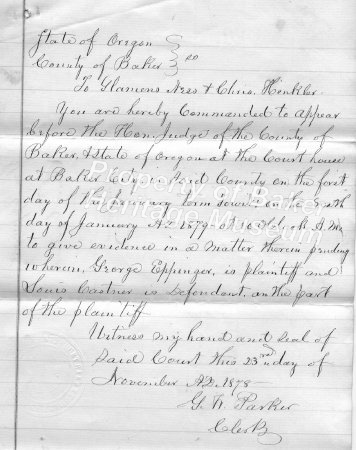 State of Oregon
County of Baker } ss
To Clamens Ness & Chris. Henkler.
You are hereby Commanded to Appear
before the Hon. Judge of the County of
Baker, & State of Oregon at the Court house
at Baker City in said County on the first
day of the January term
day of January A.D. 1879 at 10 O'clock A.M.
to give evidence in a matter therein pending
wherein, George Eppinger, is plaintiff and
Louis Castner is Defendant, on the part
of the plaintiff
Witness my hand and seal of
said Court this 23rd day of
November A.D. 1878
G. W. Parker
Clerk
Property of Baker
Heritage Museum